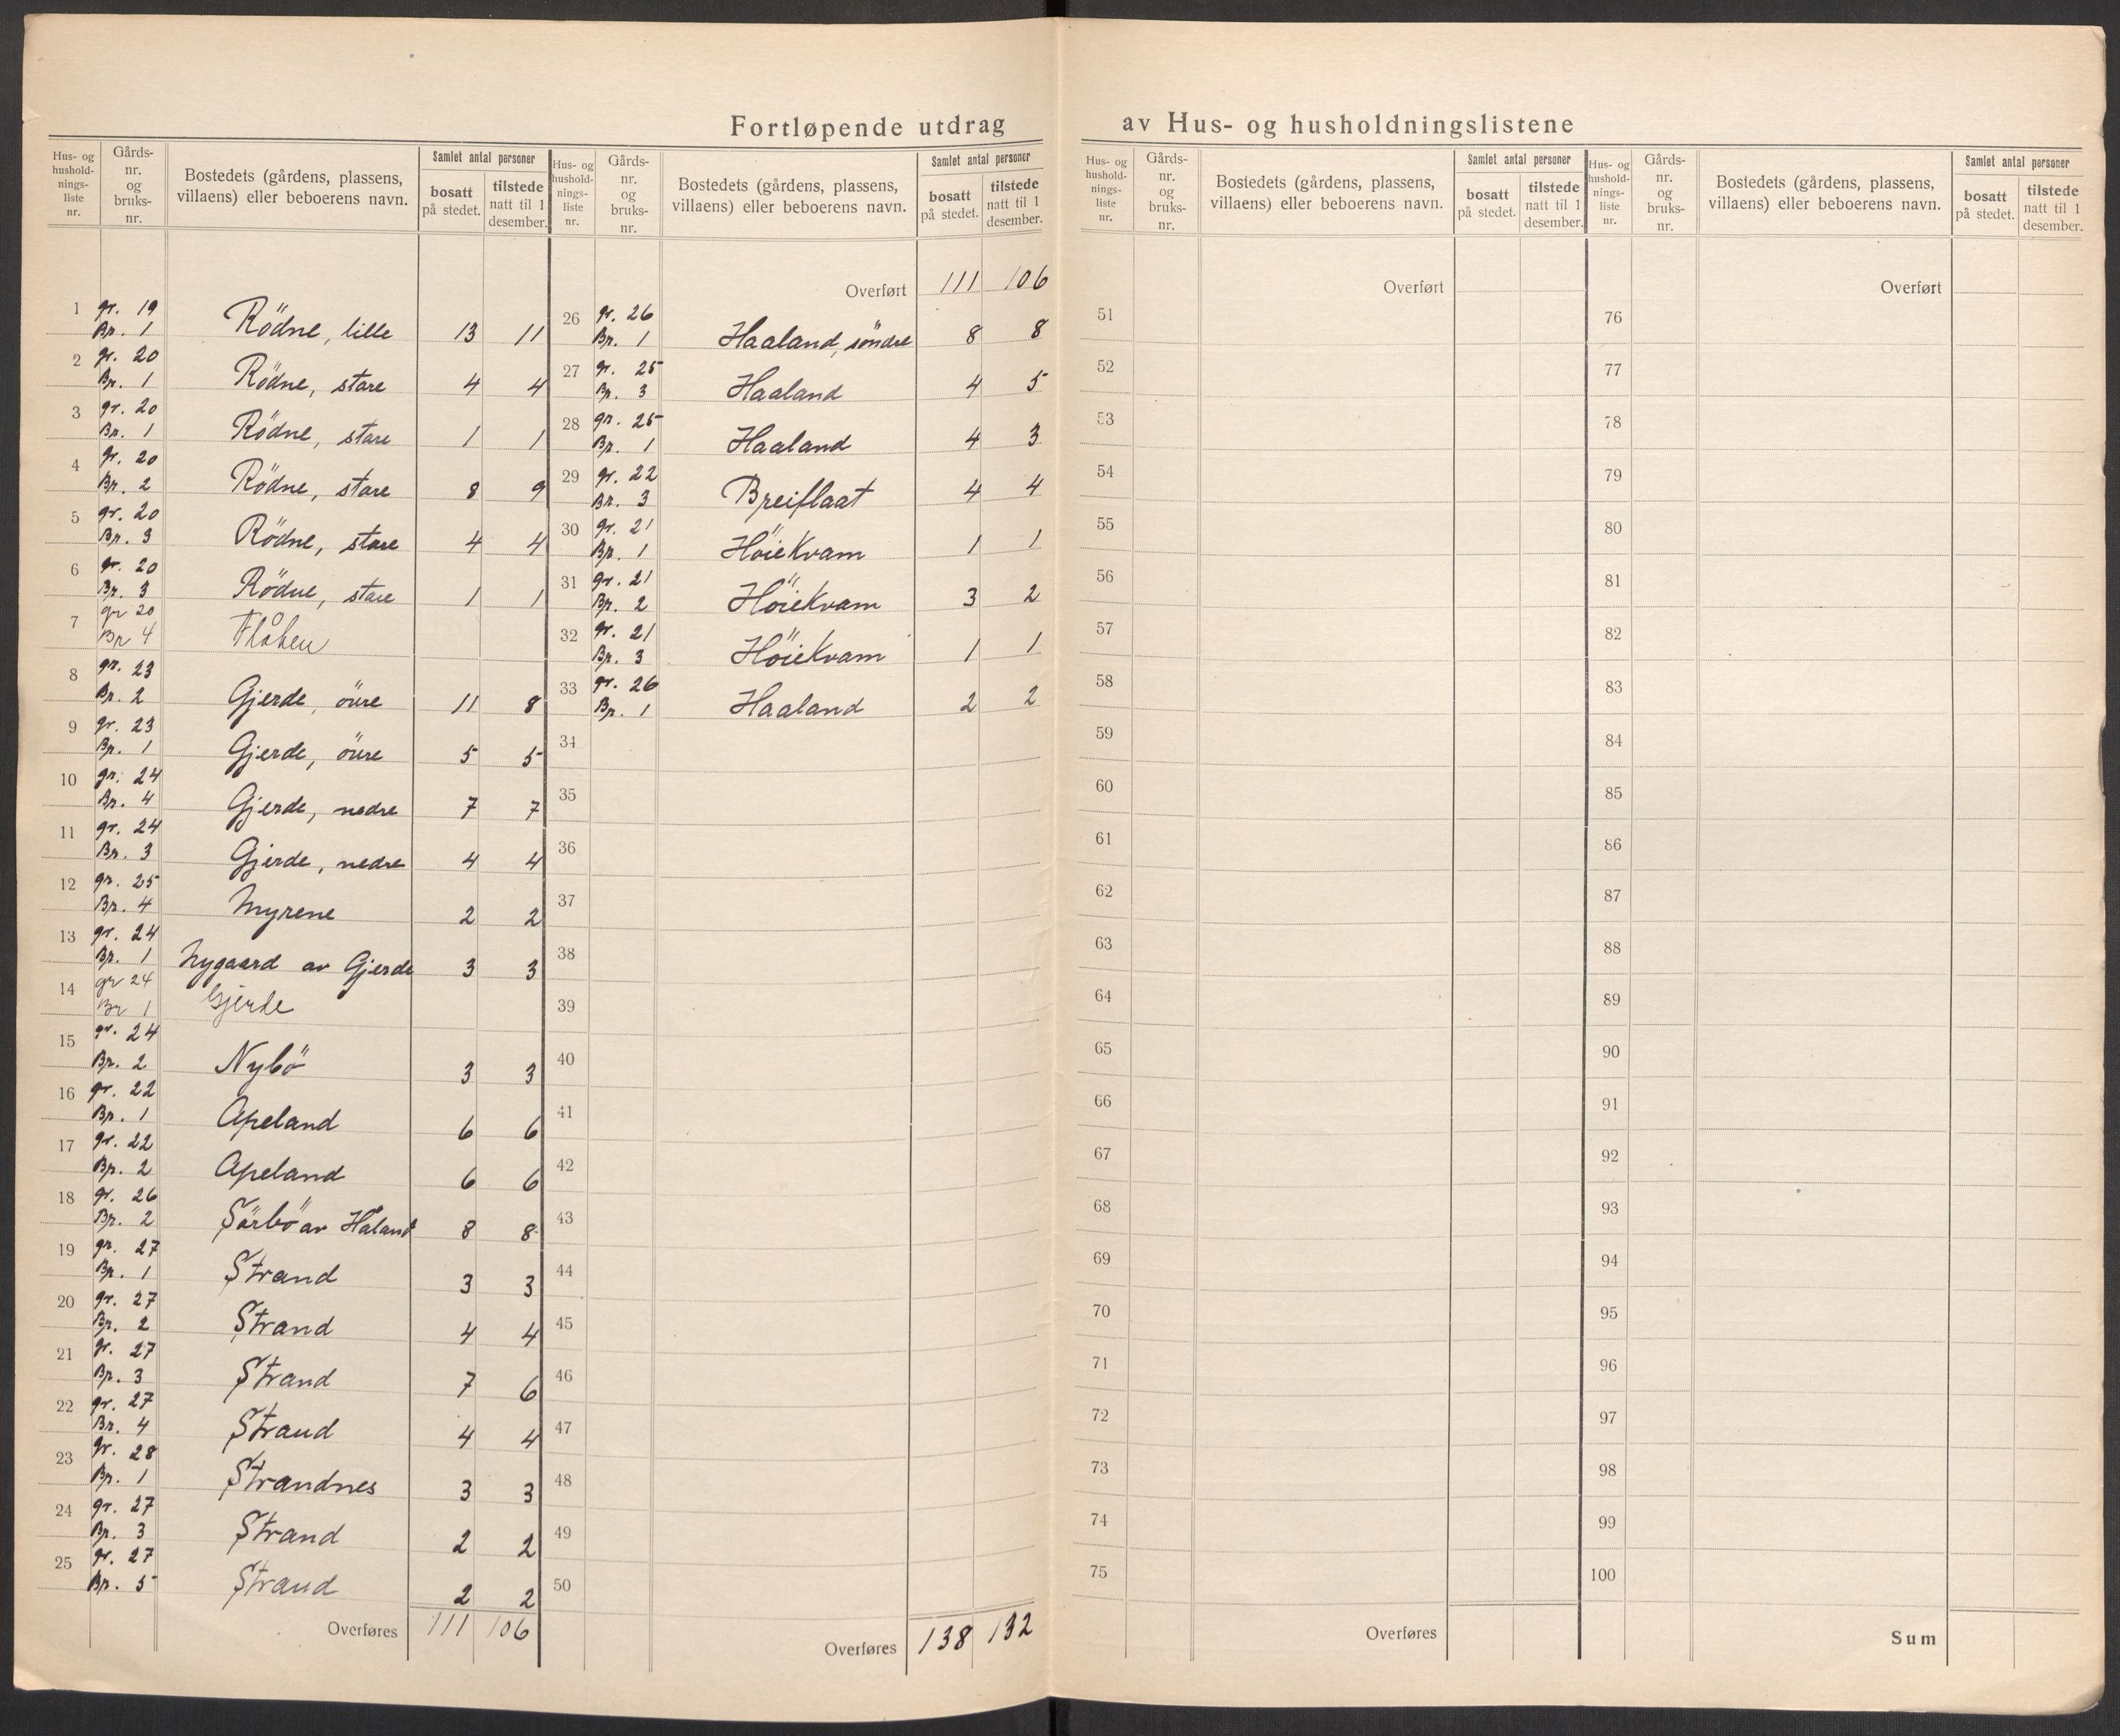 Fortløpende utdrag av Hus- og husholdningslistene
Hus- og hushold-nings-liste nr. | Gårds-nr. og bruks-nr. | Bostedets (gårdens, plassens, villaens) eller beboerens navn. | Samlet antal personer | bosatt på stedet. | tilstede natt til 1 desember.
1 gr. 19 Br. 1 Rödne, lille 13 11
2 gr. 20 Br. 1 Rödne, store 4 4
3 gr. 20 Br. 1 Rödne, store 1 1
4 gr. 20 Br. 2 Rödne, store 8 9
5 gr. 20 Br. 3 Rödne, store 4 4
6 gr. 20 Br. 3 Rödne, store 1 1
7 gr 20 Br 4
8 gr. 23 Br. 2 Gjerde, övre 11 8
9 gr. 23 Br. 1 Gjerde, övre 5 5
10 gr. 24 Br. 4 Gjerde, nedre 7 7
11 gr. 24 Br. 3 Gjerde, nedre 4 4
12 gr. 25 Br. 4 Myrene 2 2
13 gr. 24 Br. 1 Nygaard av Gjerde 3 3
14 gr 24 Br 1 Gjerde
15 gr. 24 Br. 2 Nybö 3 3
16 gr. 22 Br. 1 Apeland 6 6
17 gr. 22 Br. 2 Apeland 6 6
18 gr. 26 Br. 2 Sörbö av Håland 8 8
19 gr. 27 Br. 1 Strand 3 3
20 gr. 27 Br. 2 Strand 4 4
21 gr. 27 Br. 3 Strand 7 6
22 gr. 27 Br. 4 Strand 4 4
23 gr. 28 Br. 1 Strandnes 3 3
24 gr. 27 Br. 3 Strand 2 2
25 gr. 27 Br. 5 Strand 2 2
Overføres 111 106
Hus- og hushold-nings-liste nr. | Gårds-nr. og bruks-nr. | Bostedets (gårdens, plassens, villaens) eller beboerens navn. | Samlet antal personer | bosatt på stedet. | tilstede natt til 1 desember.
Overført 111 106
26 gr. 26 Br. 1 Haaland, söndre 8 8
27 gr. 25 Br. 3 Haaland 4 5
28 gr. 25 Br. 1 Haaland 4 3
29 gr. 22 Br. 3 Breiflaat 4 4
30 gr. 21 Br. 1 Höiekvam 1 1
31 gr. 21 Br. 2 Höiekvam 3 2
32 gr. 21 Br. 3 Höiekvam 1 1
33 gr. 26 Br. 1 Haaland 2 2
34
35
36
37
38
39
40
41
42
43
44
45
46
47
48
49
50
Overføres 138 132
Hus- og hushold-nings-liste nr. | Gårds-nr. og bruks-nr. | Bostedets (gårdens, plassens, villaens) eller beboerens navn. | Samlet antal personer | bosatt på stedet. | tilstede natt til 1 desember.
Overført
51
52
53
54
55
56
57
58
59
60
61
62
63
64
65
66
67
68
69
70
71
72
73
74
75
Overføres
Hus- og hushold-nings-liste nr. | Gårds-nr. og bruks-nr. | Bostedets (gårdens, plassens, villaens) eller beboerens navn. | Samlet antal personer | bosatt på stedet. | tilstede natt til 1 desember.
Overført
76
77
78
79
80
81
82
83
84
85
86
87
88
89
90
91
92
93
94
95
96
97
98
99
100
Sum